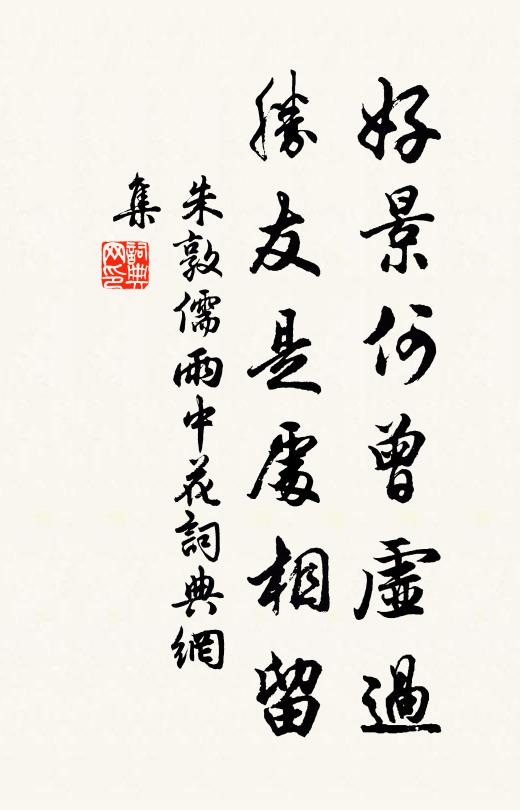 好景何曾虛過
勝友是處相留
朱敦儒雨中花詞典網
集
詞典
网印